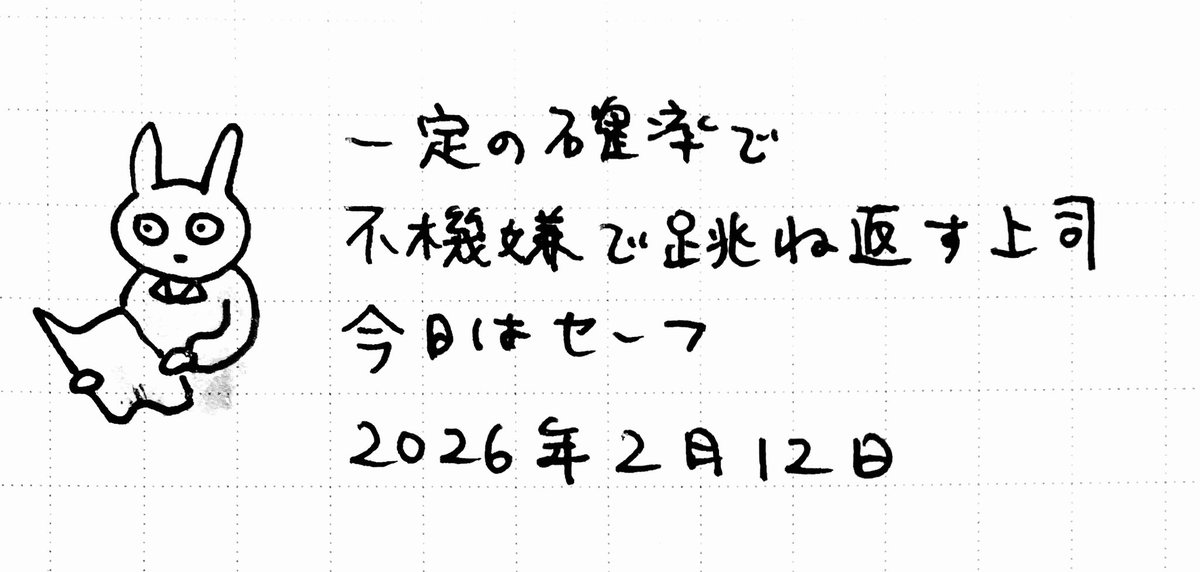 一定の確率で
不機嫌で跳ね返す上司
今日はセーフ
2026年2月12日